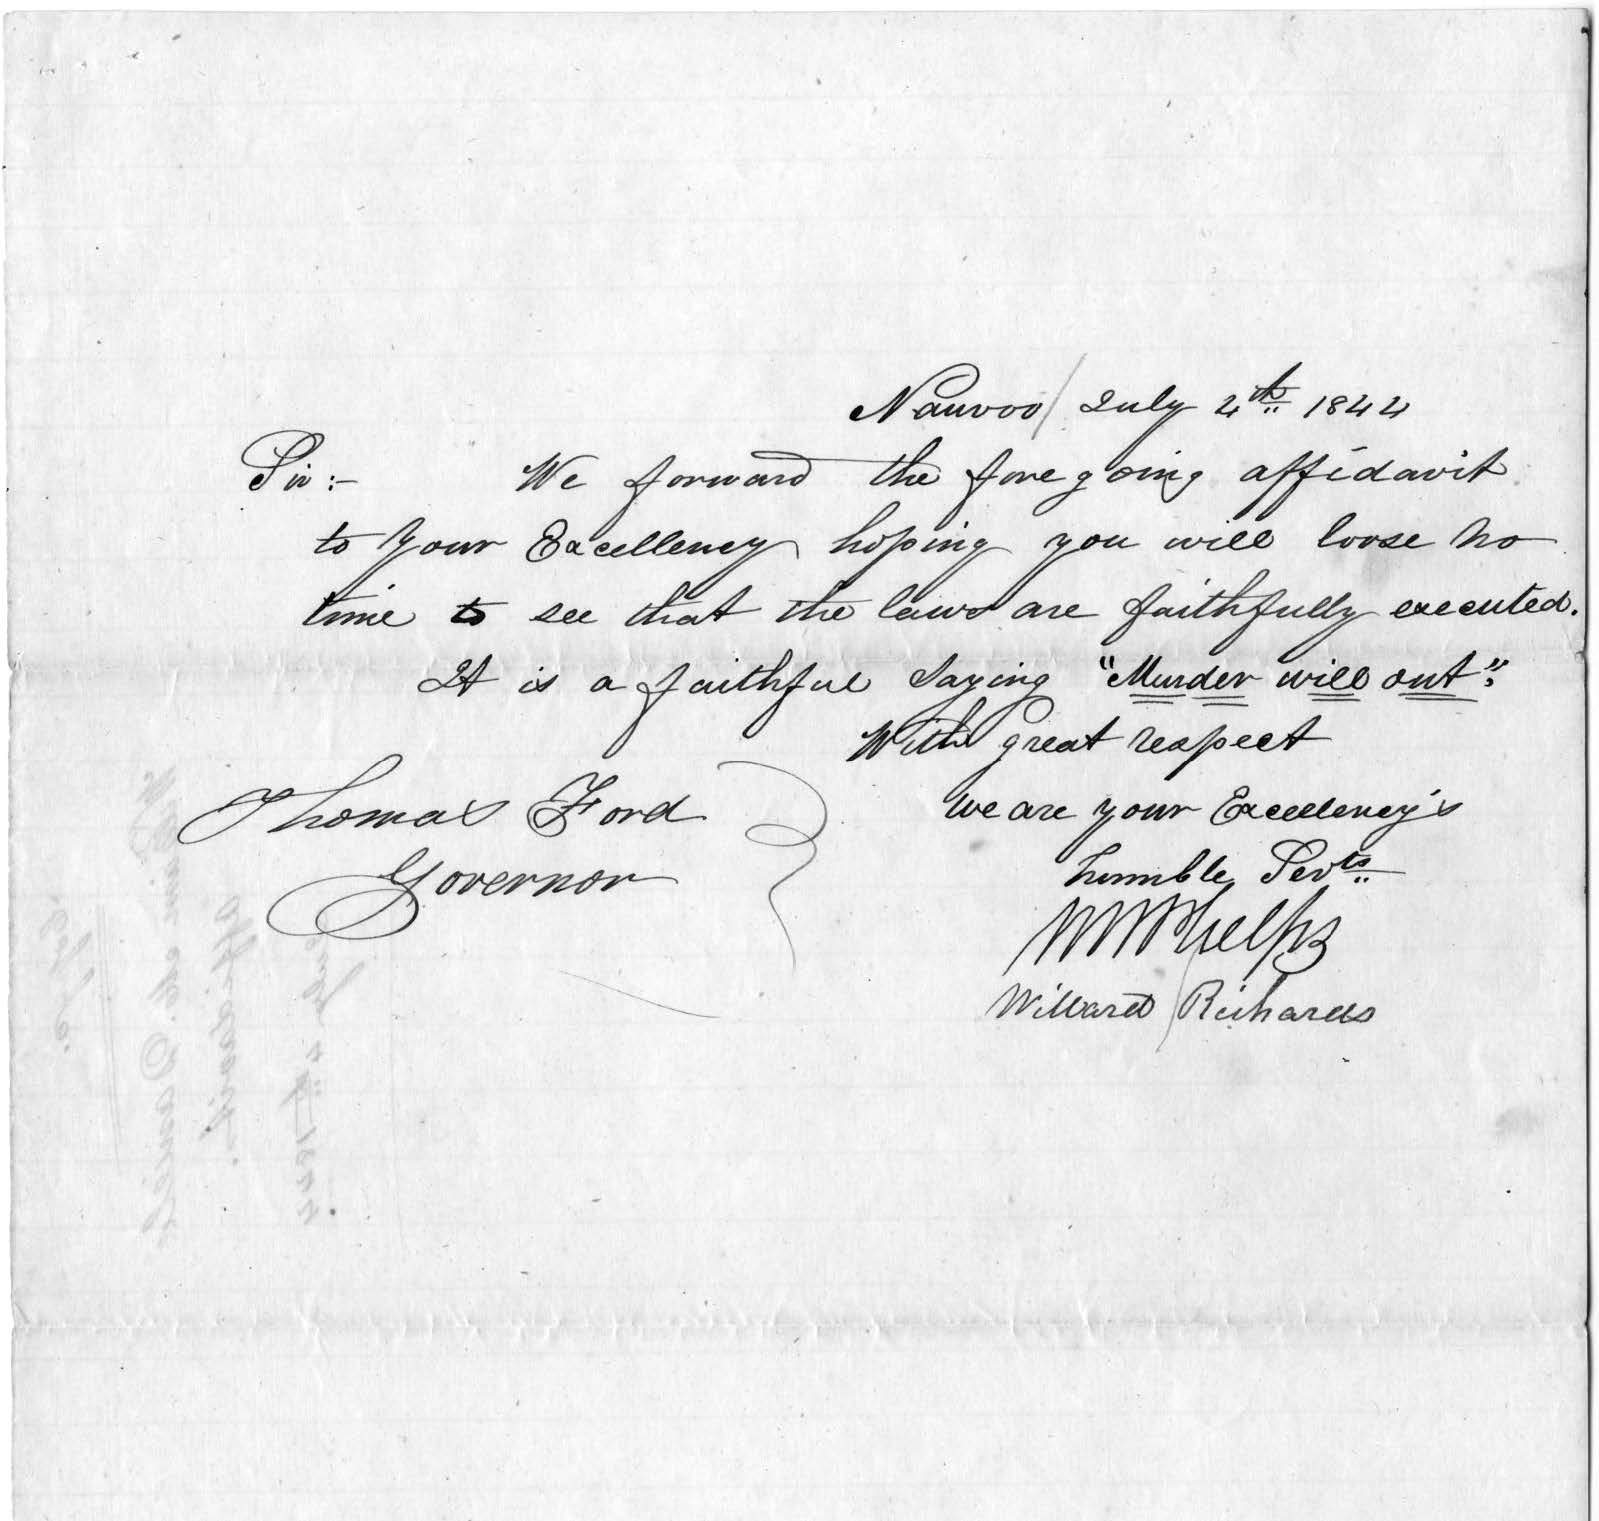 Nauvoo July 4th 1844
Sir:- We forward the foregoing affidavit
to your Excellency hoping you will loose no
time to see that the laws are faithfully executed.
It is a faithful saying "Murder will out".
With great respect
We are your Excellency's
humble Servts
Thomas Ford
Governor
W W Phelps
Willard Richards
affidavit